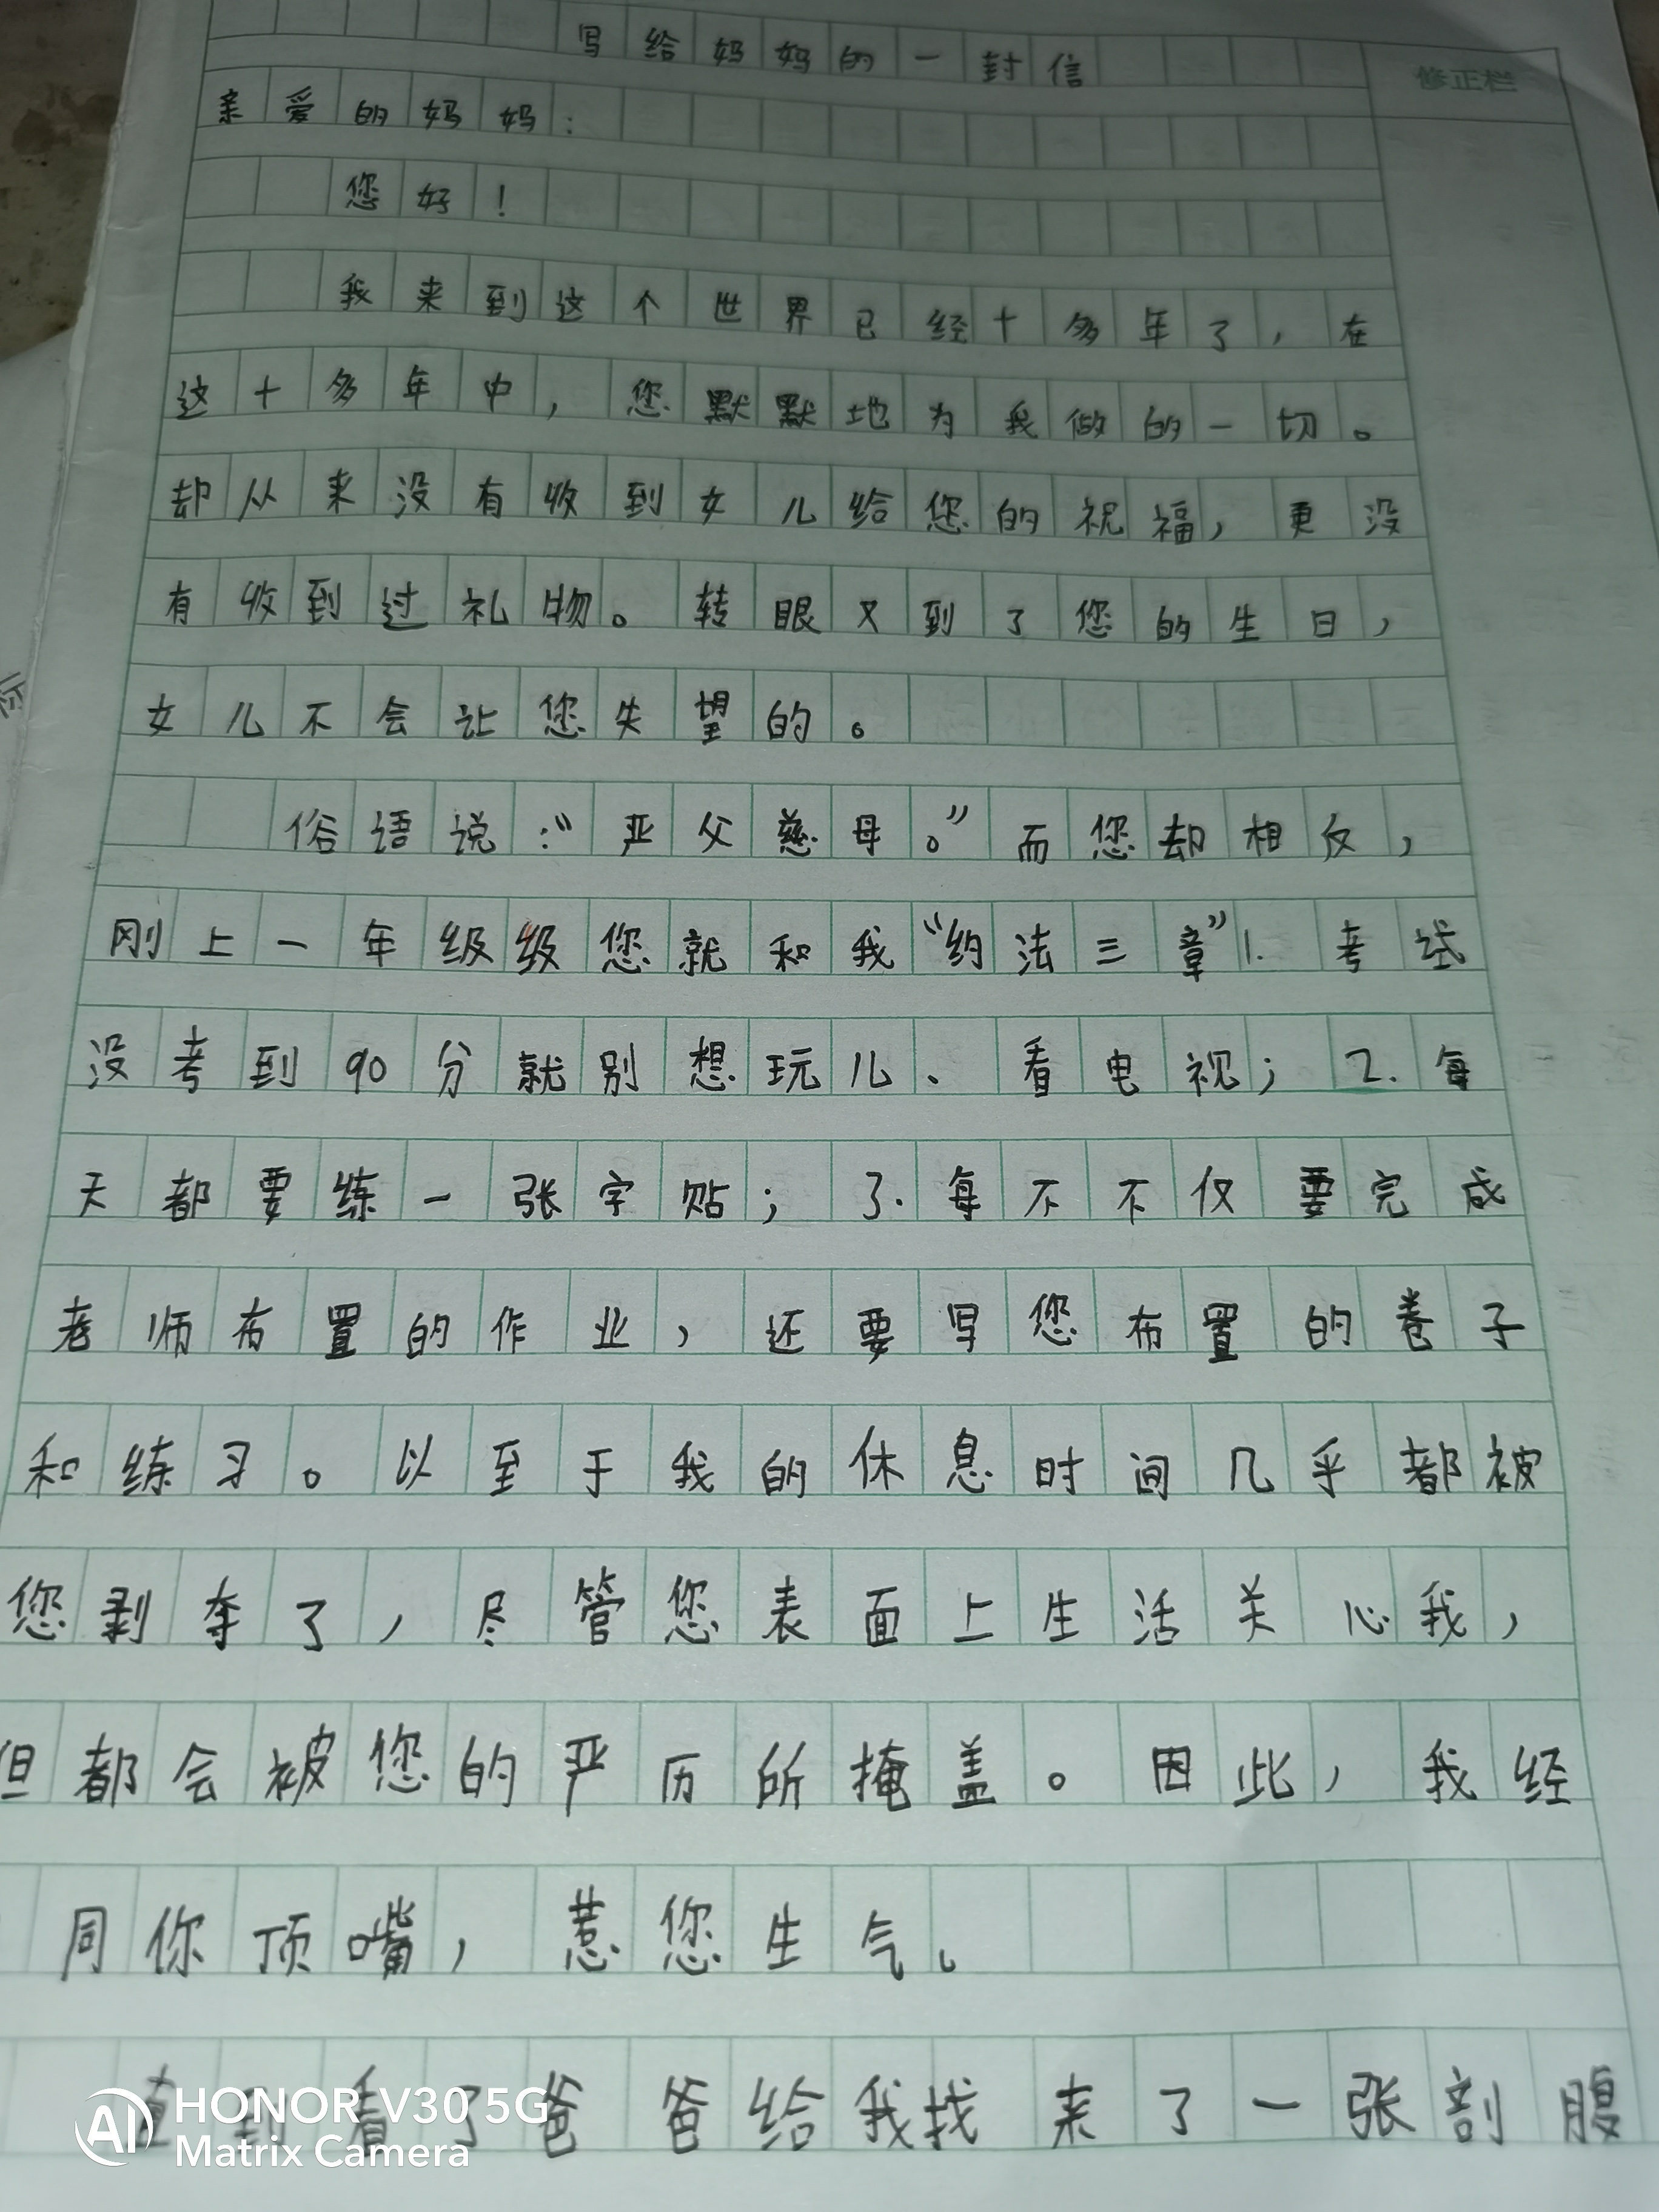 写给妈妈的一封信
修正栏
亲爱的妈妈：
您好！
我来到这个世界已经十多年了，在
这十多年中，您默默地为我做的一切。
却从来没有收到女儿给您的祝福，更没
有收到过礼物。转眼又到了您的生日，
女儿不会让您失望的。
俗语说：“严父慈母。”而您却相反，
刚上一年级级您就和我“约法三章”1.考试
没考到90分就别想玩儿、看电视；2.每
天都要练一张字贴；3.每不不仅要完成
老师布置的作业，还要写您布置的卷子
和练习。以至于我的休息时间几乎都被
您剥夺了，尽管您表面上生活关心我，
但都会被您的严历所掩盖。因此，我经
同你顶嘴，惹您生气。
直到看了爸爸给我找来了一张剖腹
HONOR V30 5G
AI Matrix Camera